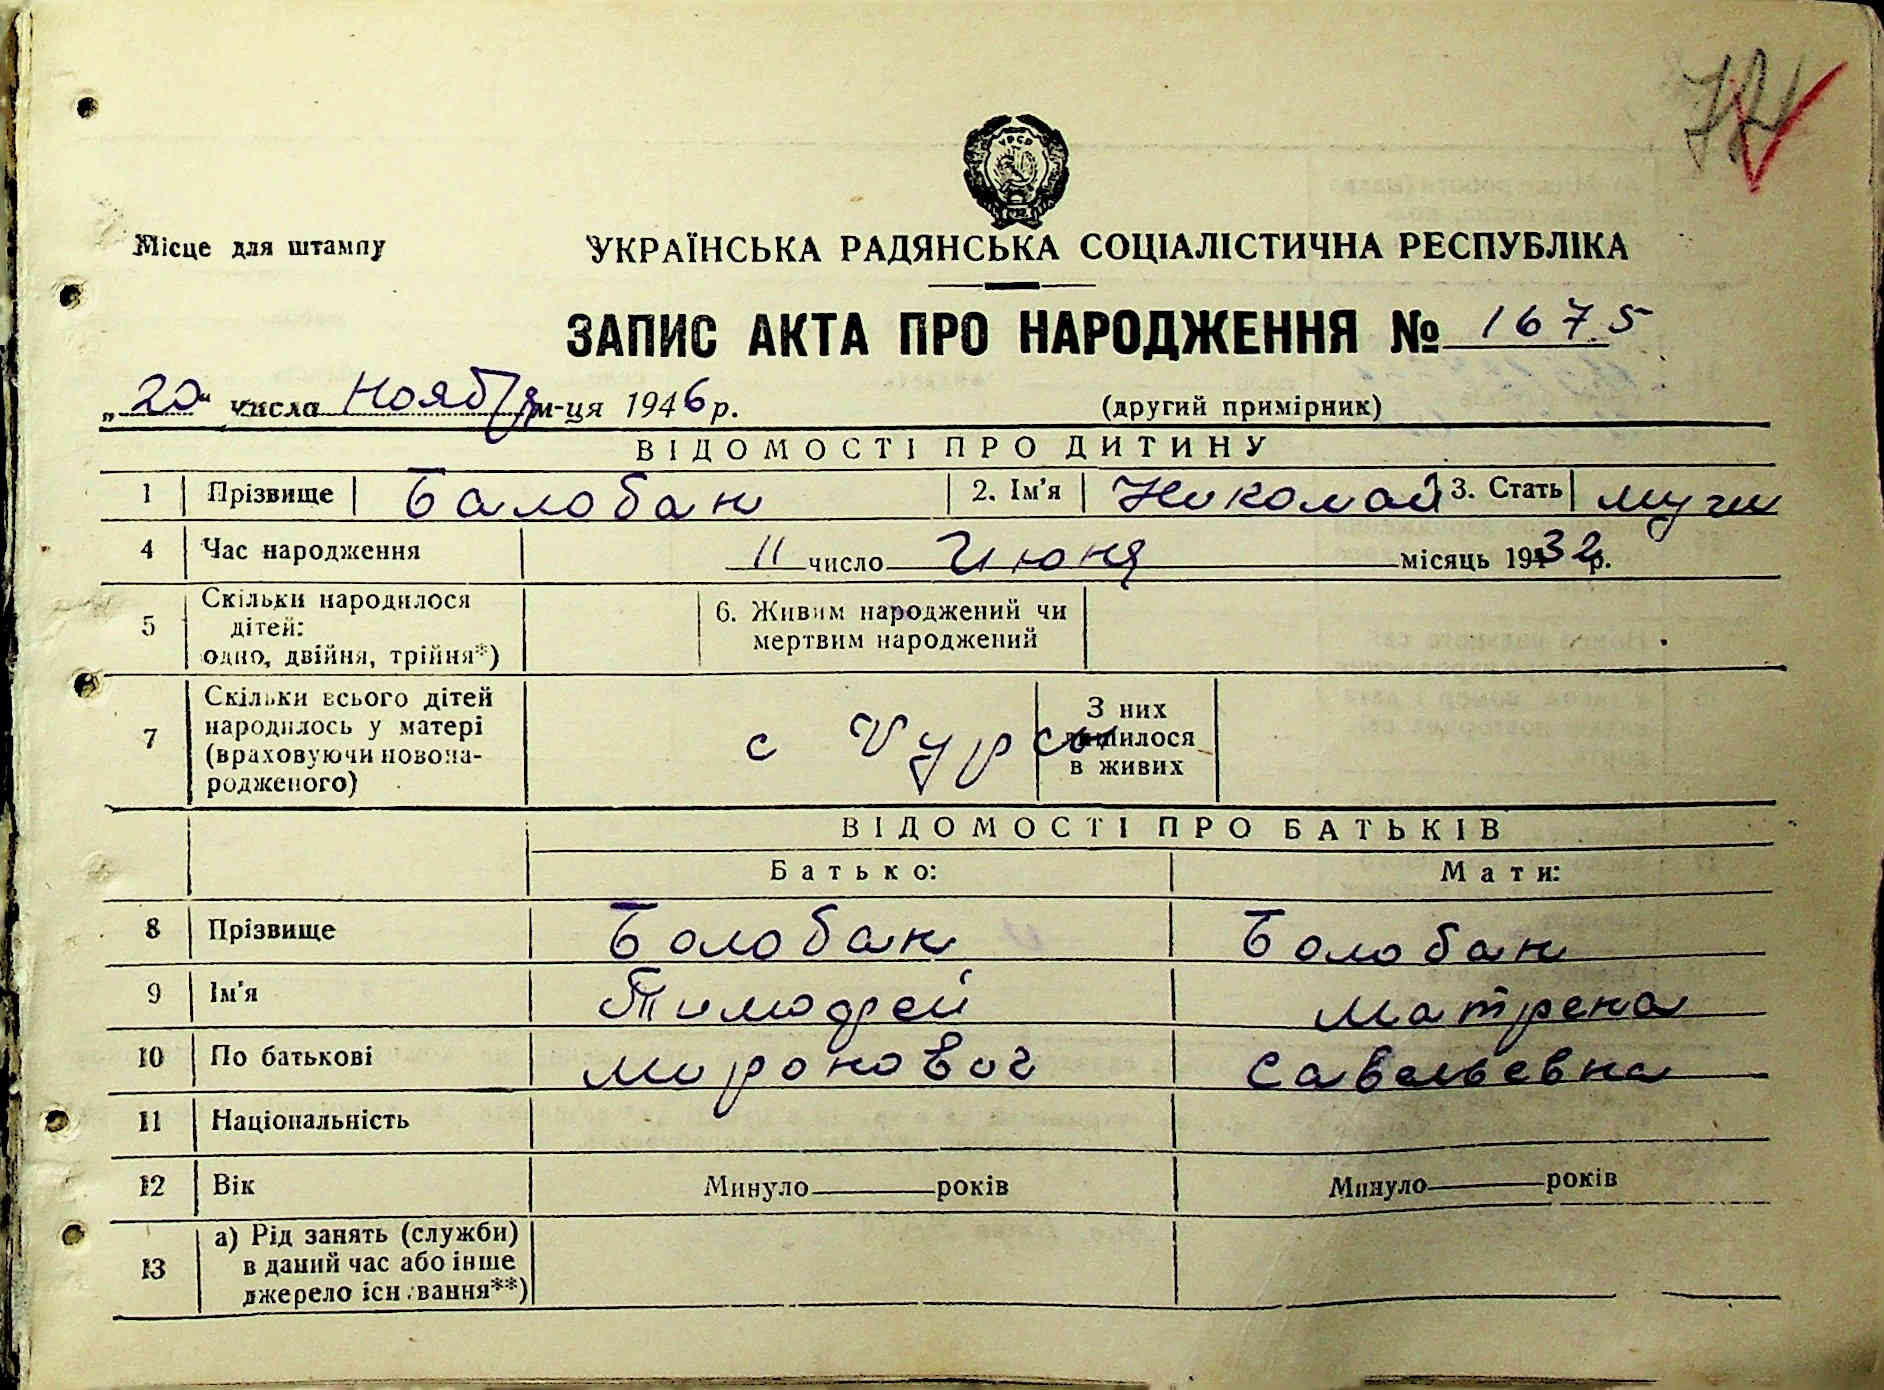 УРСР
Місце для штампу
УКРАЇНСЬКА РАДЯНСЬКА СОЦІАЛІСТИЧНА РЕСПУБЛІКА
ЗАПИС АКТА ПРО НАРОДЖЕННЯ № 1675
„20“ числа Ноября м-ця 1946 р.
(другий примірник)
ВІДОМОСТІ ПРО ДИТИНУ
1 Прізвище Балобан 2. Ім'я Николай 3. Стать муж
4 Час народження 11 число Июня місяць 1932 р.
5 Скільки народилося дітей: одно, двійня, трійня*) 6. Живим народжений чи мертвим народжений
7 Скільки всього дітей народилось у матері (враховуючи новонародженого) с Чурсы З них лишилося в живих
ВІДОМОСТІ ПРО БАТЬКІВ
Батько: Мати:
8 Прізвище Болобан Болобан
9 Ім'я Тимофей Матрена
10 По батькові Миронович Савельевна
11 Національність
12 Вік Минуло років Минуло років
13 а) Рід занять (служби) в даний час або інше джерело існування**)